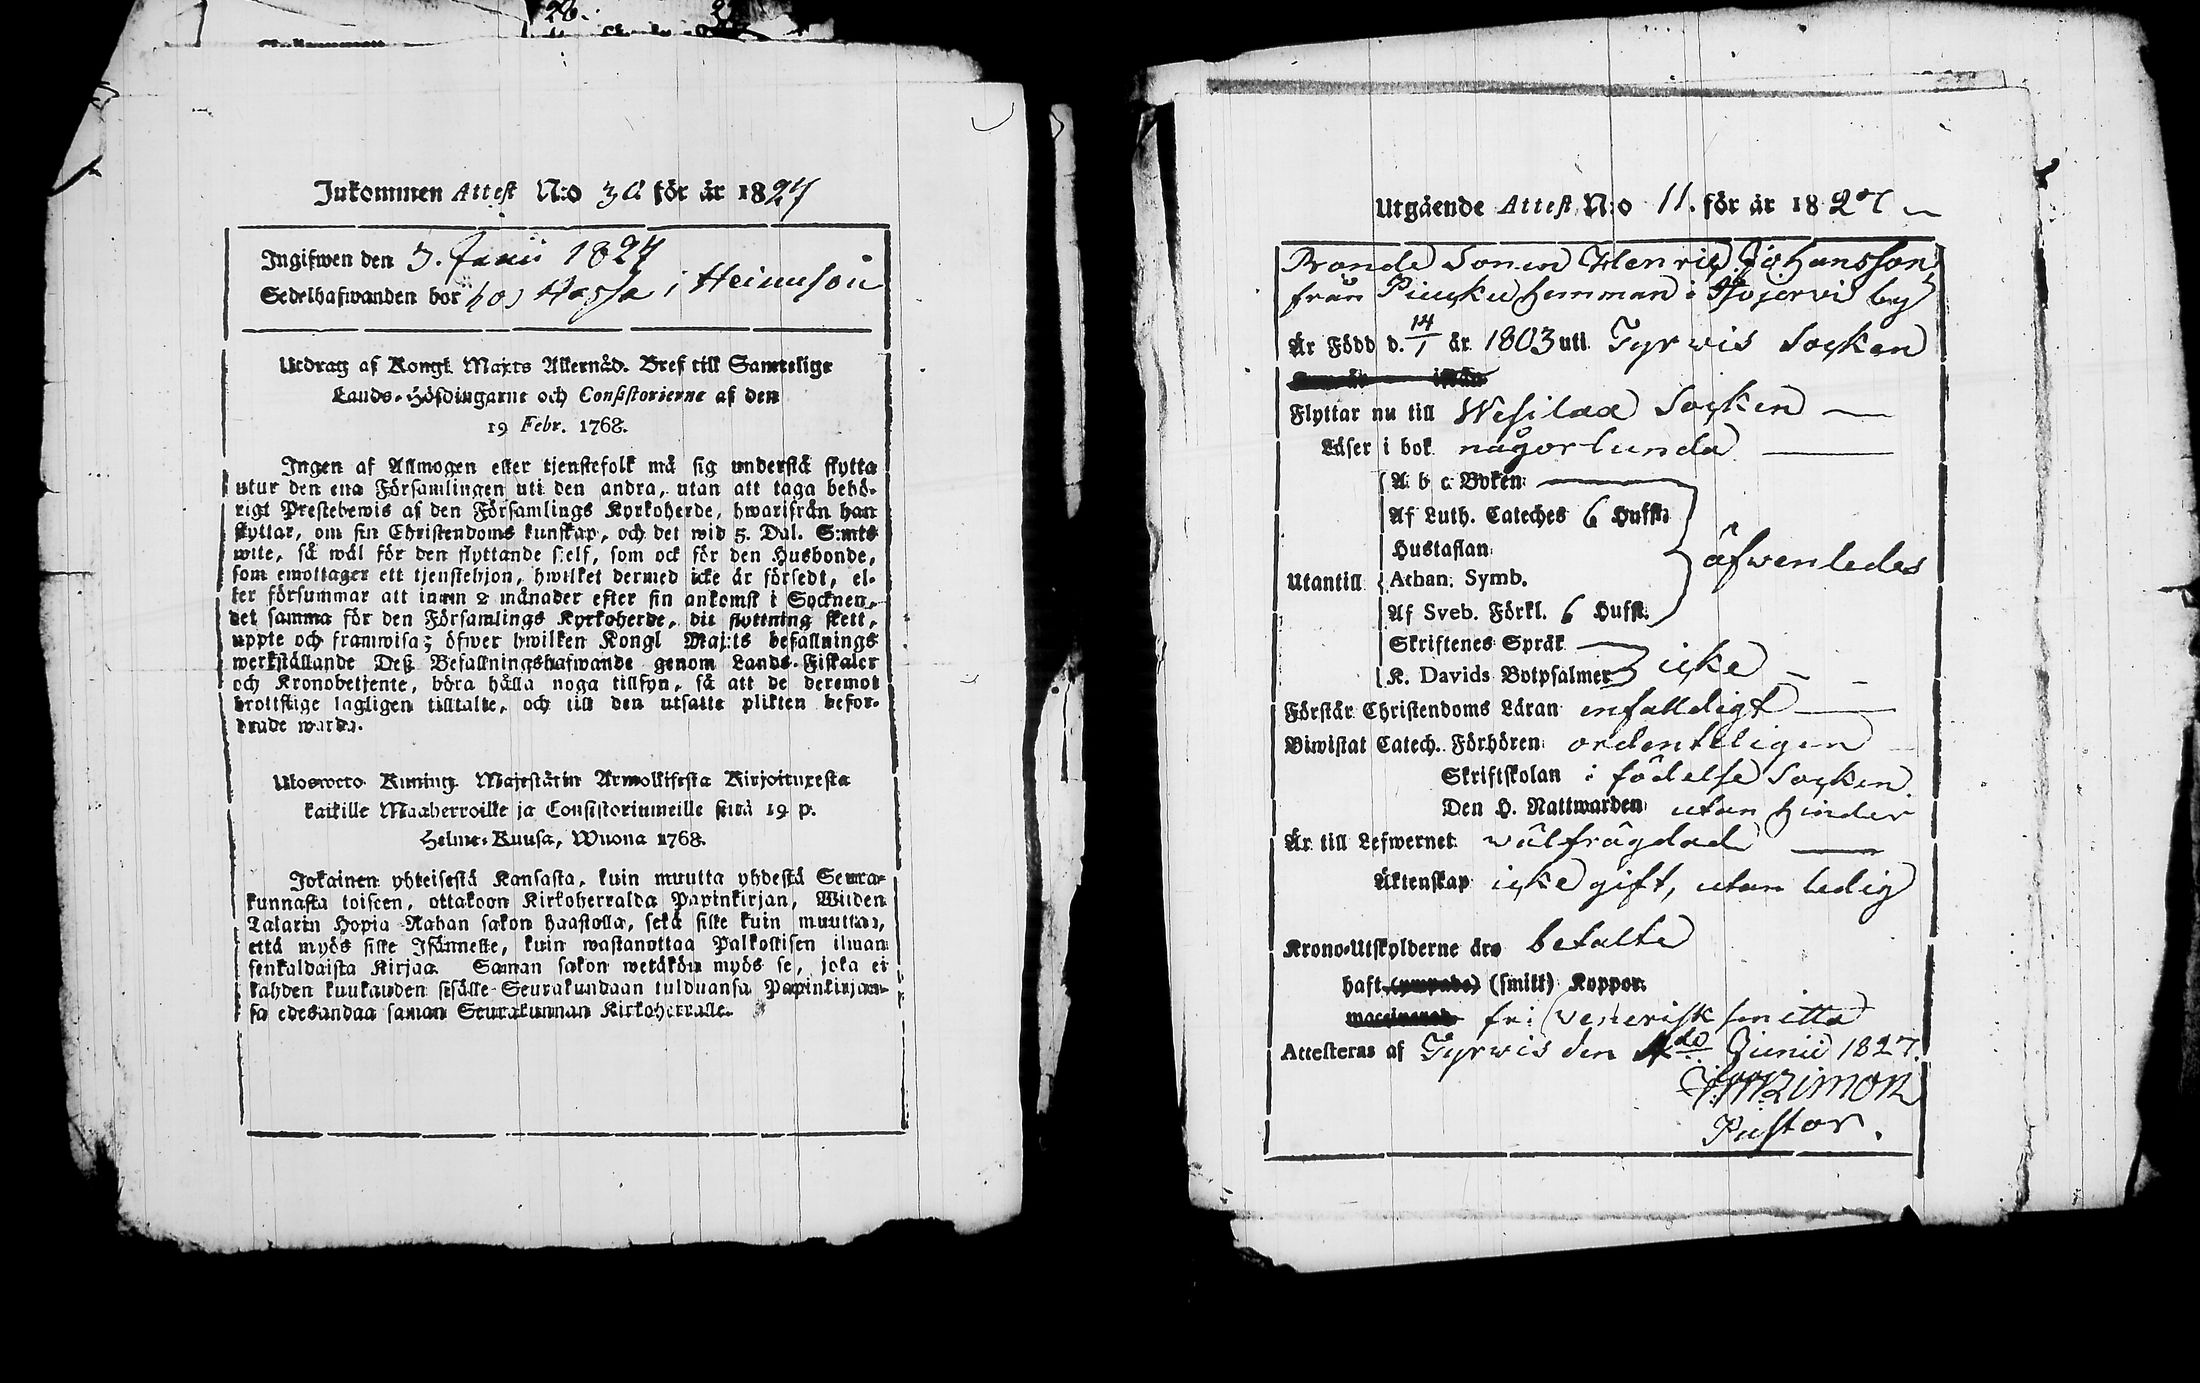 26. 3
Inkommen Attest N:o 30 för år 1827
Ingifwen den 3. Junii 1827
Sedelhafwanden bor hos Hassa i Heinuson
Utdrag af Kongl. Maj:ts Allernåd. Bref till Samtelige
Lands-Höfdingarne och Consistorierne af den
19 Febr. 1768.
Ingen af Allmogen eller tjenstefolk må sig understå flytta
utur den ena Församlingen uti den andra, utan att taga behö-
rigt Prestebewis af den Församlings Kyrkoherde, hwarifrån han
flyttar, om sin Christendoms kunskap, och det wid 5. Dal. S:mts
wite, så wäl för den flyttande sielf, som ock för den Husbonde,
som emottager ett tjenstehjon, hwilket dermed icke är försedt, el-
ler försummar att innan 2 månader efter sin ankomst i Socknen,
det samma för den Församlings Kyrkoherde, dit flyttning skett,
uppte och framwisa; öfwer hwilken Kongl Maj:ts befallnings
werkställande Deß Befallningshafwande genom Lands-Fiskaler
och Kronobetjente, böra hålla noga tillsyn, så att de deremot
brottslige lagligen tilltalte, och till den utsatte plikten befor-
drade warda.
Ulosweto Kuning. Majestätin Armollisesta Kirjoituxesta
kaikille Maaherroille ja Consistoriumeille siitä 19 p.
Helme-Kuusa, Wuona 1768.
Jokainen yhteisestä Kansasta, kuin muutta yhdestä Seura-
kunnasta toiseen, ottakoon Kirkoherralda Papinkirjan, Wiiden
Talarin Hopia Rahan sakon haastolla, sekä sille kuin muuttaa,
että myös sille Isännelle, kuin wastanottaa Palkollisen ilman
senkaldaista Kirjaa. Saman sakon wetäkön myös se, joka ei
kahden kuukauden sisälle Seurakundaan tulduansa Papinkirjaan-
sa edesandaa saman Seurakunnan Kirkoherralle.
Utgående Attest N:o 11. för år 1827
Bonde Sonen Henric Johansson
från Piusku hemman i by
Är Född d. 14/1 år 1803 uti Tyrwis Socken
Flyttar nu till Wesilax Socken
Läser i bok någorlunda
A b c Boken
Af Luth. Cateches 6 Hufst.
Hustaflan
äfwenledes
Utantill Athan. Symb.
Af Sveb. Förkl. 6 Hufst.
Skriftenes Språk
K. Davids Botpsalmer icke
Förstår Christendoms Läran enfalldigt
Biwistat Catech. Förhören ordenteligen
Skriftskolan i födelse Socken
Den H. Nattwarden utan hinder
Är till Lefwernet wälfrägdad
Äktenskap icke gift, utan ledig
Krono-Utskylderne äro betalte
haft (smitt) Koppor.
fri venerisk smitta
Attesteras af Tyrwis den 4de Junii 1827.
Pastor.